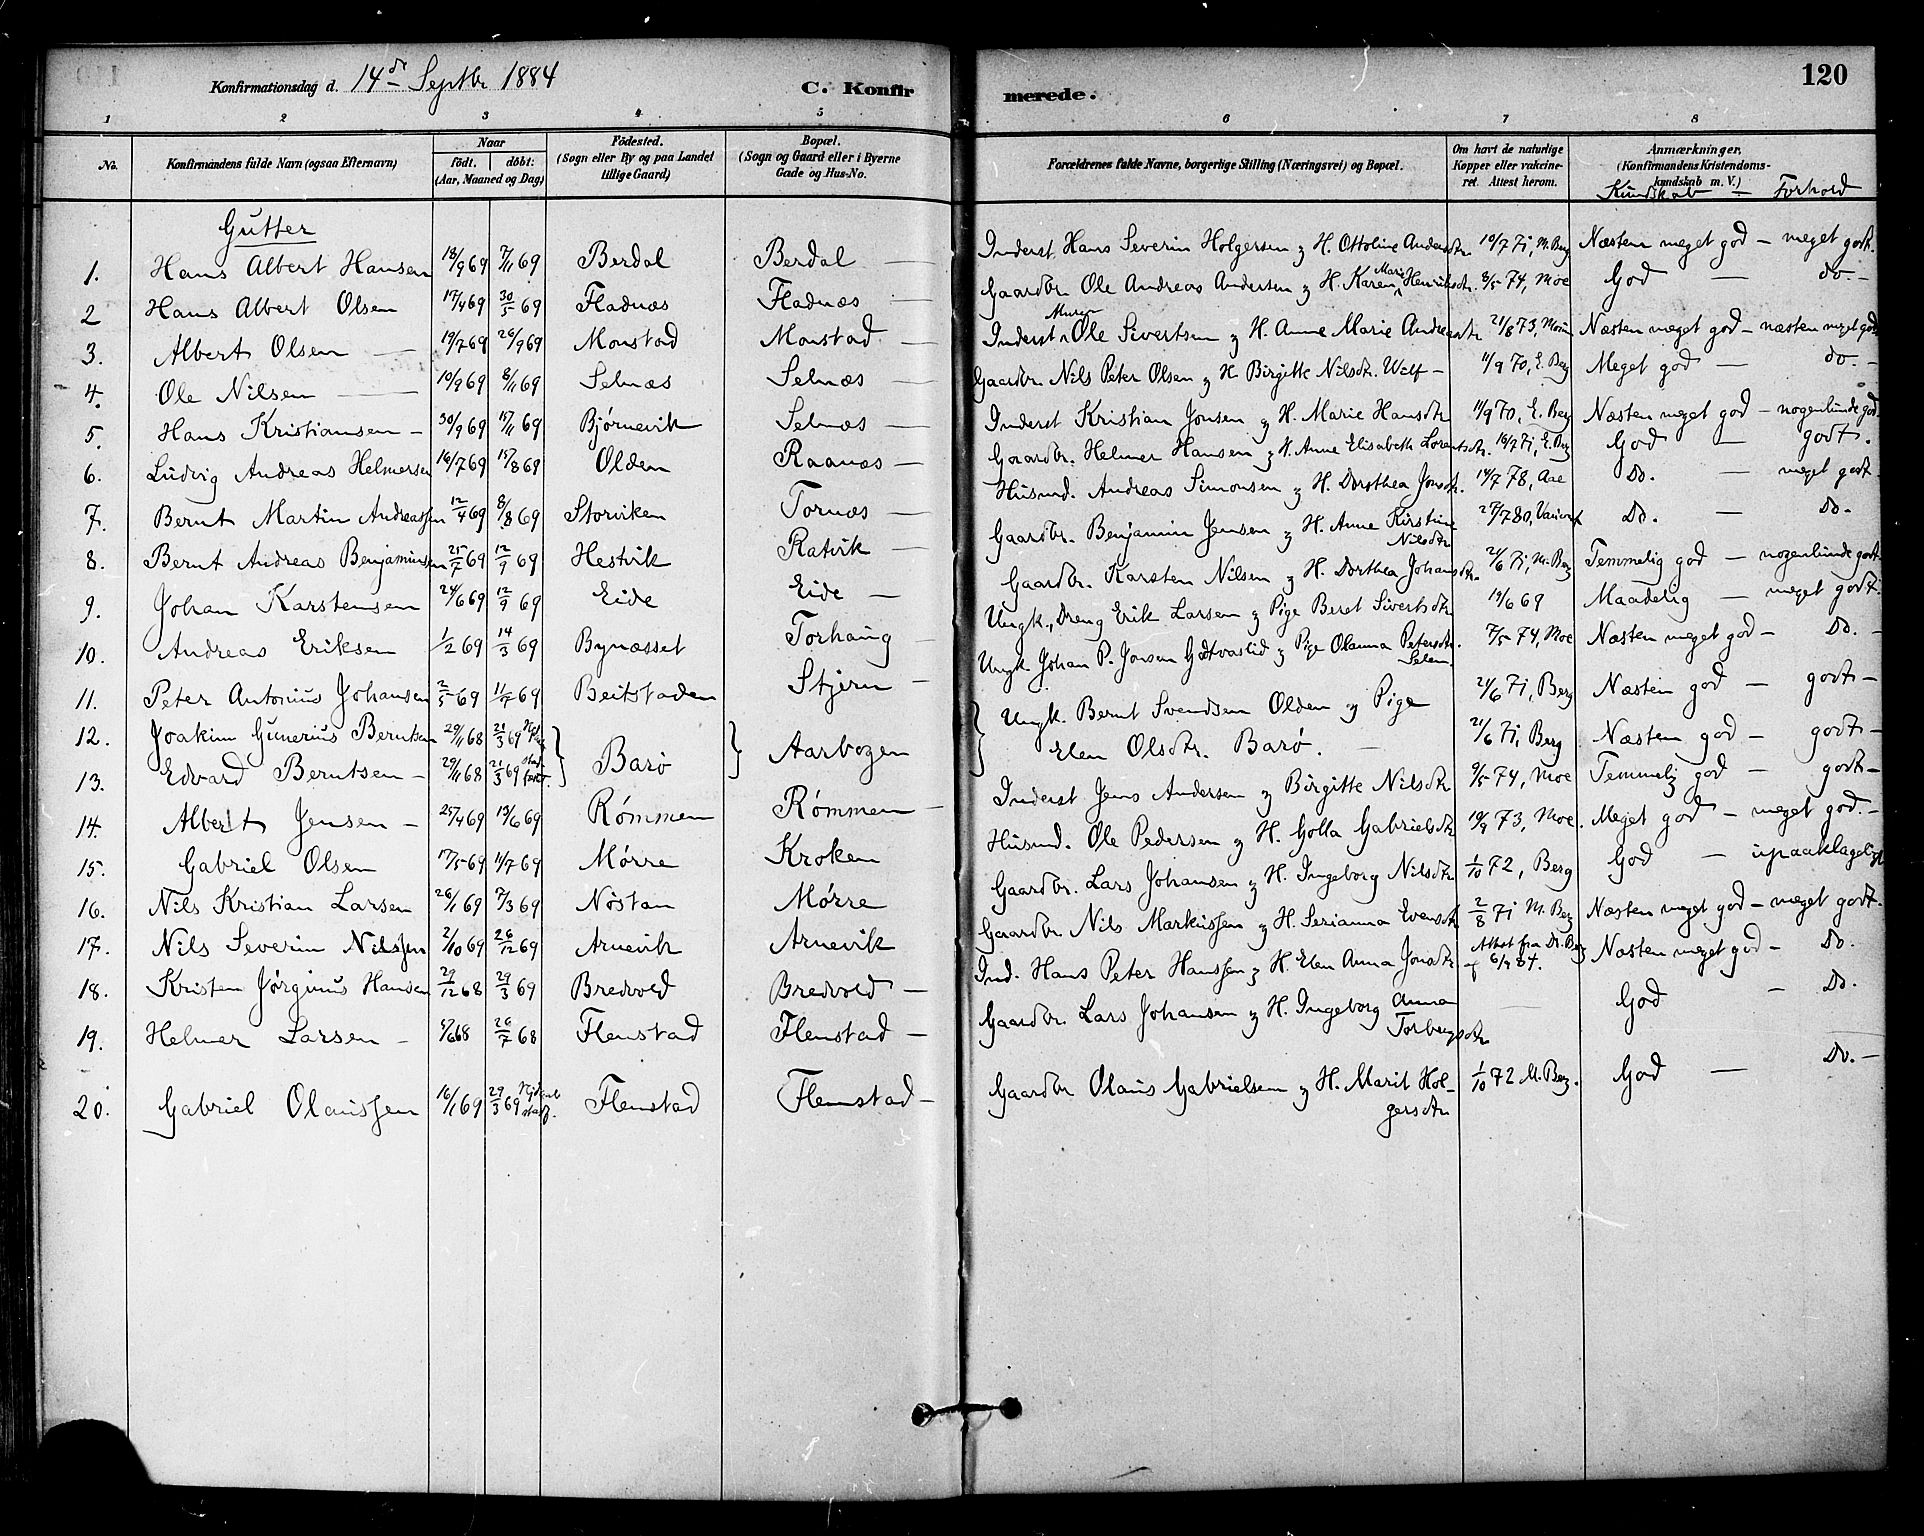 Konfirmationsdag d. 14de Septbr 1884
C. Konfirmerede.
120
1 2 3 4 5 6 7 8
No. Konfirmandens fulde Navn (ogsaa Efternavn) Naar födt. döbt: (Aar, Maaned og Dag) Födested. (Sogn eller By og paa Landet tillige Gaard) Bopæl. (Sogn og Gaard eller i Byerne Gade og Hus-No.) Forældrenes fulde Navne, borgerlige Stilling (Næringsvei) og Bopæl. Om havt de naturlige Kopper eller vakcineret. Attest herom. Anmærkninger, (Konfirmandens Kristendomskundskab m. V.)
Kundskab — Forhold
Gutter
1. Hans Albert Hansen 18/9 69 7/11 69 Berdal Berdal — Inderst Hans Severin Holgersen og H. Ottoline Andersdtr. 10/7 71, M. Berg Næsten meget god — meget godt.
2 Hans Albert Olsen 17/4 69 30/5 69 Fladnæs Fladnæs — Gaardbr. Ole Andreas Andersen og H. Karen Marie Henriksdtr. 8/5 74, Moe God — do —
3. Albert Olsen — 19/7 69 26/9 69 Monstad Monstad — Inderst Ole Sivertsen og H. Anne Marie Andreasdtr 21/8 73, Næsten meget god — næsten meget god
4. Ole Nilsen — 10/9 69 8/11 69 Selnæs Selnæs — Gaardbr. Nils Peter Olsen og H. Birgitte Nilsdtr. Wulf — 11/9 70, E. Berg Meget god — do. —
5. Hans Kristiansen — 30/9 69 15/11 69 Bjørnevik Selnæs — Inderst Kristian Jonsen og H. Marie Hansdtr 11/9 70, E. Berg Næsten meget god — nogenlunde god
6. Ludvig Andreas Helmersen 16/7 69 15/8 69 Olden Raanæs — Gaardbr. Helmer Hansen og H. Anne Elisabeth Lorentsdtr. 10/7 71, E. Berg God — godt.
7. Bernt Martin Andreassen 12/4 69 8/8 69 Storviken Tornæs — Husmd. Andreas Simonsen og H. Dorthea Jonsdtr. 14/7 78, Aae Do. — meget godt.
8. Bernt Andreas Benjaminsen 25/7 69 12/9 69 Hestvik Ratvik — Gaardbr. Benjamin Jensen og H. Anne Kirstine Nilsdtr 27/7 80, Do. — Do.
9. Johan Karstensen 24/6 69 12/9 69 Eide Eide — Gaardbr. Karsten Nilsen og H. Dorthea Johansdtr. 21/6 71, M. Berg Temmelig god — nogenlunde godt.
10. Andreas Eriksen 1/2 69 14/3 69 Bynæsset Torhaug — Ungk., Dreng Erik Larsen og Pige Beret Sivertsdtr 14/6 69 Maadelig — meget godt.
11. Peter Antonius Johansen 2/5 69 11/7 69 Beitstaden Stjern — Ungk. Johan P. Jonsen Godtvaslid og Pige Olanna Petersdtr. Selen. 7/5 74, Moe Næsten meget god — Do. —
12. Joakim Gunerius Berntsen 29/11 68 21/3 69 } Barö } Aarbogen } Ungk. Bernt Svendsen Olden og Pige 21/6 71, Berg Næsten god — godt —
13. Edvard Berntsen — 29/11 68 21/3 69 Elen Olsdtr. Barö. — 21/6 71, Berg Næsten god — godt —
14. Albert Jensen — 25/4 69 13/6 69 Römmen Römmen — Inderst Jens Andersen og Birgitte Nilsdtr 9/5 74, Moe Temmelig god — godt —
15. Gabriel Olsen 17/5 69 11/7 69 Mörre Kroken Husmd. Ole Pedersen og H. Golla Gabrielsdtr 10/9 73, Moe. Meget god — meget god. —
16. Nils Kristian Larsen 26/1 69 7/3 69 Nöstan Mörre Gaardbr. Lars Johansen og H. Ingeborg Nilsdtr 1/10 72, Berg God — upaaklageligt
17. Nils Severin Nilssen 2/10 69 26/12 69 Arnevik Arnevik Gaardbr. Nils Markussen og H. Serianna Evensdtr 2/8 71 M. Berg Næsten meget god — meget godt.
18. Kristen Jørginus Hansen 29/12 68 29/3 69 Bredvold Bredvold — Ind. Hans Peter Hanssen og H. Elen Anna Jonsdtr Attest fra Dr. Berg Næsten meget god — Do.
19. Helmer Larsen — 5/6 68 26/7 68 Flenstad Flenstad — Gaardbr. Lars Johansen og H. Ingeborg Anna Torbergsdtr — God — Do.
20. Gabriel Olaussen 16/1 69 29/3 69 Flenstad Flenstad — Gaardbr Olaus Gabrielsen og H. Marit Holgersdtr 1/10 72 M. Berg. God — Do. —